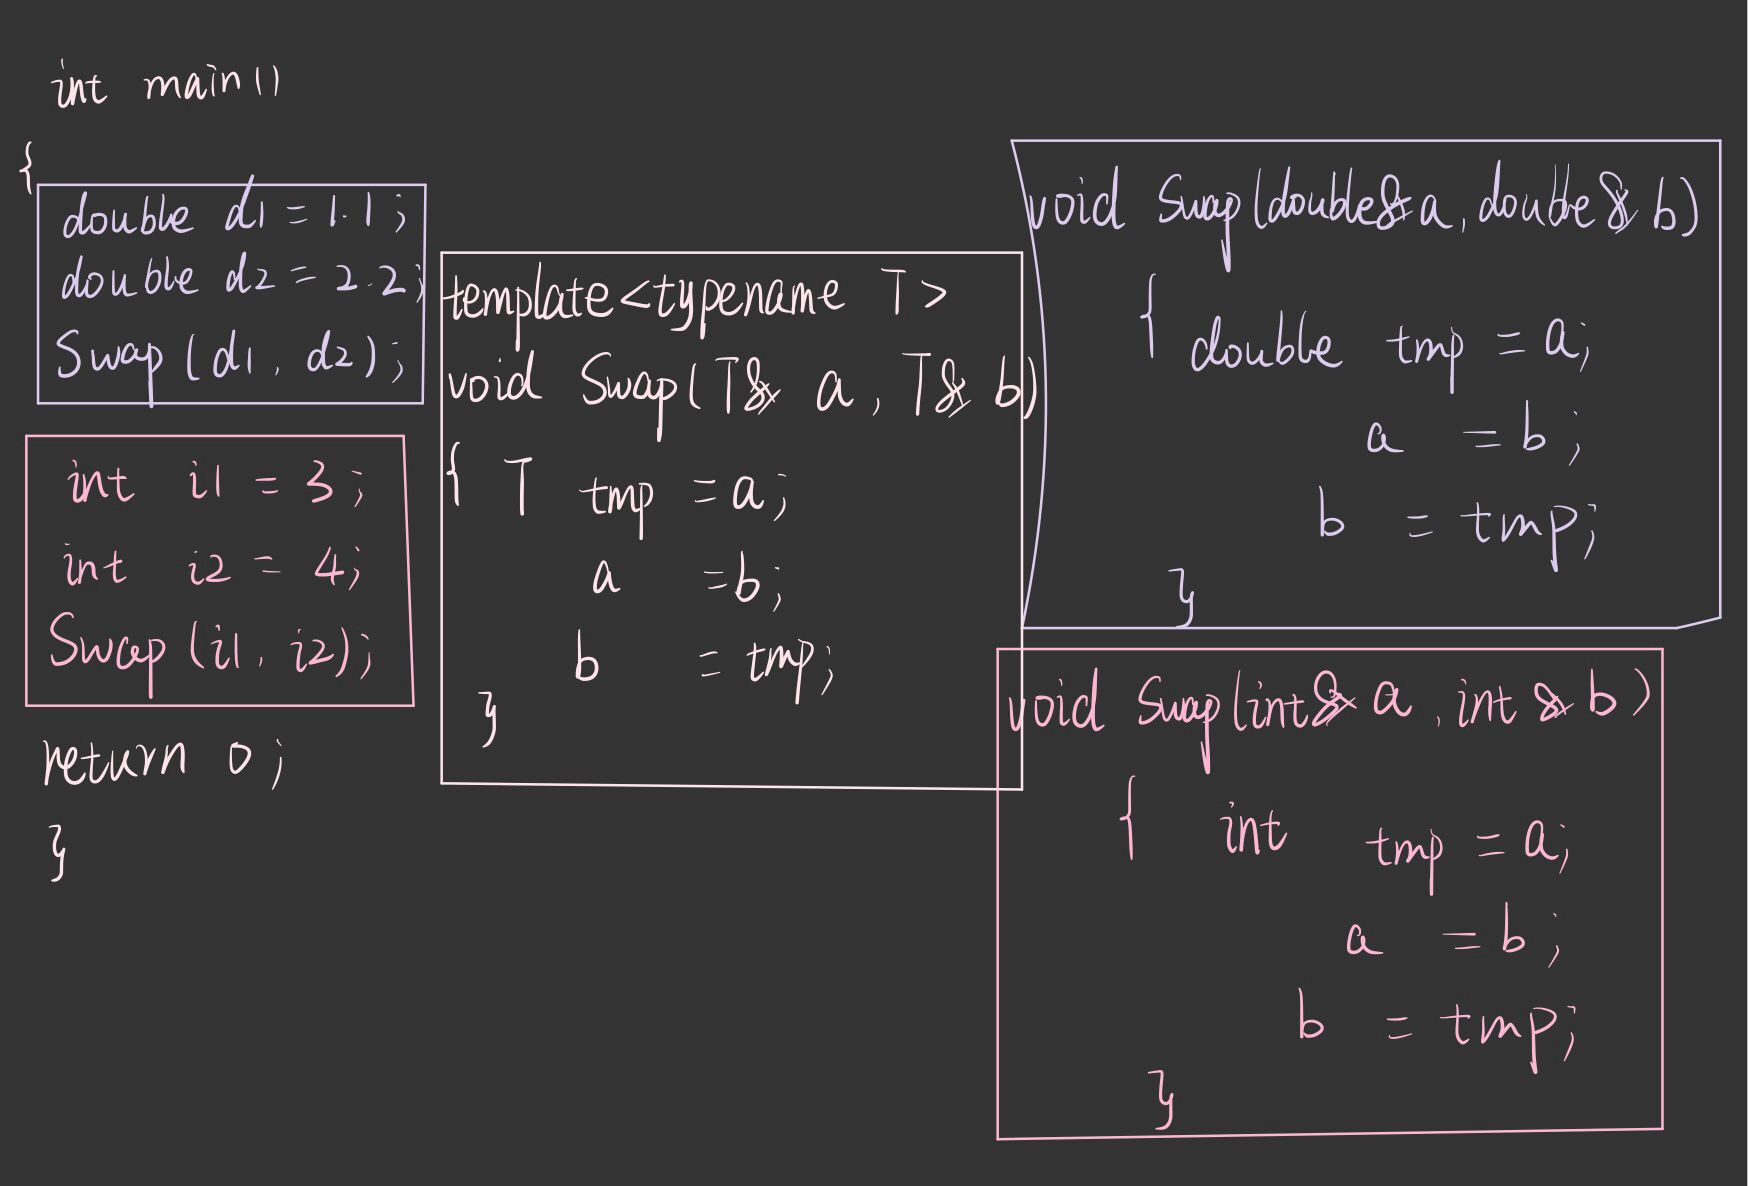 int main()
{
double d1 = 1.1;
double d2 = 2.2;
Swap(d1, d2);
int i1 = 3;
int i2 = 4;
Swap(i1, i2);
return 0;
}
template<typename T>
void Swap(T& a, T& b)
{ T tmp = a;
a = b;
b = tmp;
}
void Swap(double& a, double& b)
{ double tmp = a;
a = b;
b = tmp;
}
void Swap(int& a, int& b)
{ int tmp = a;
a = b;
b = tmp;
}